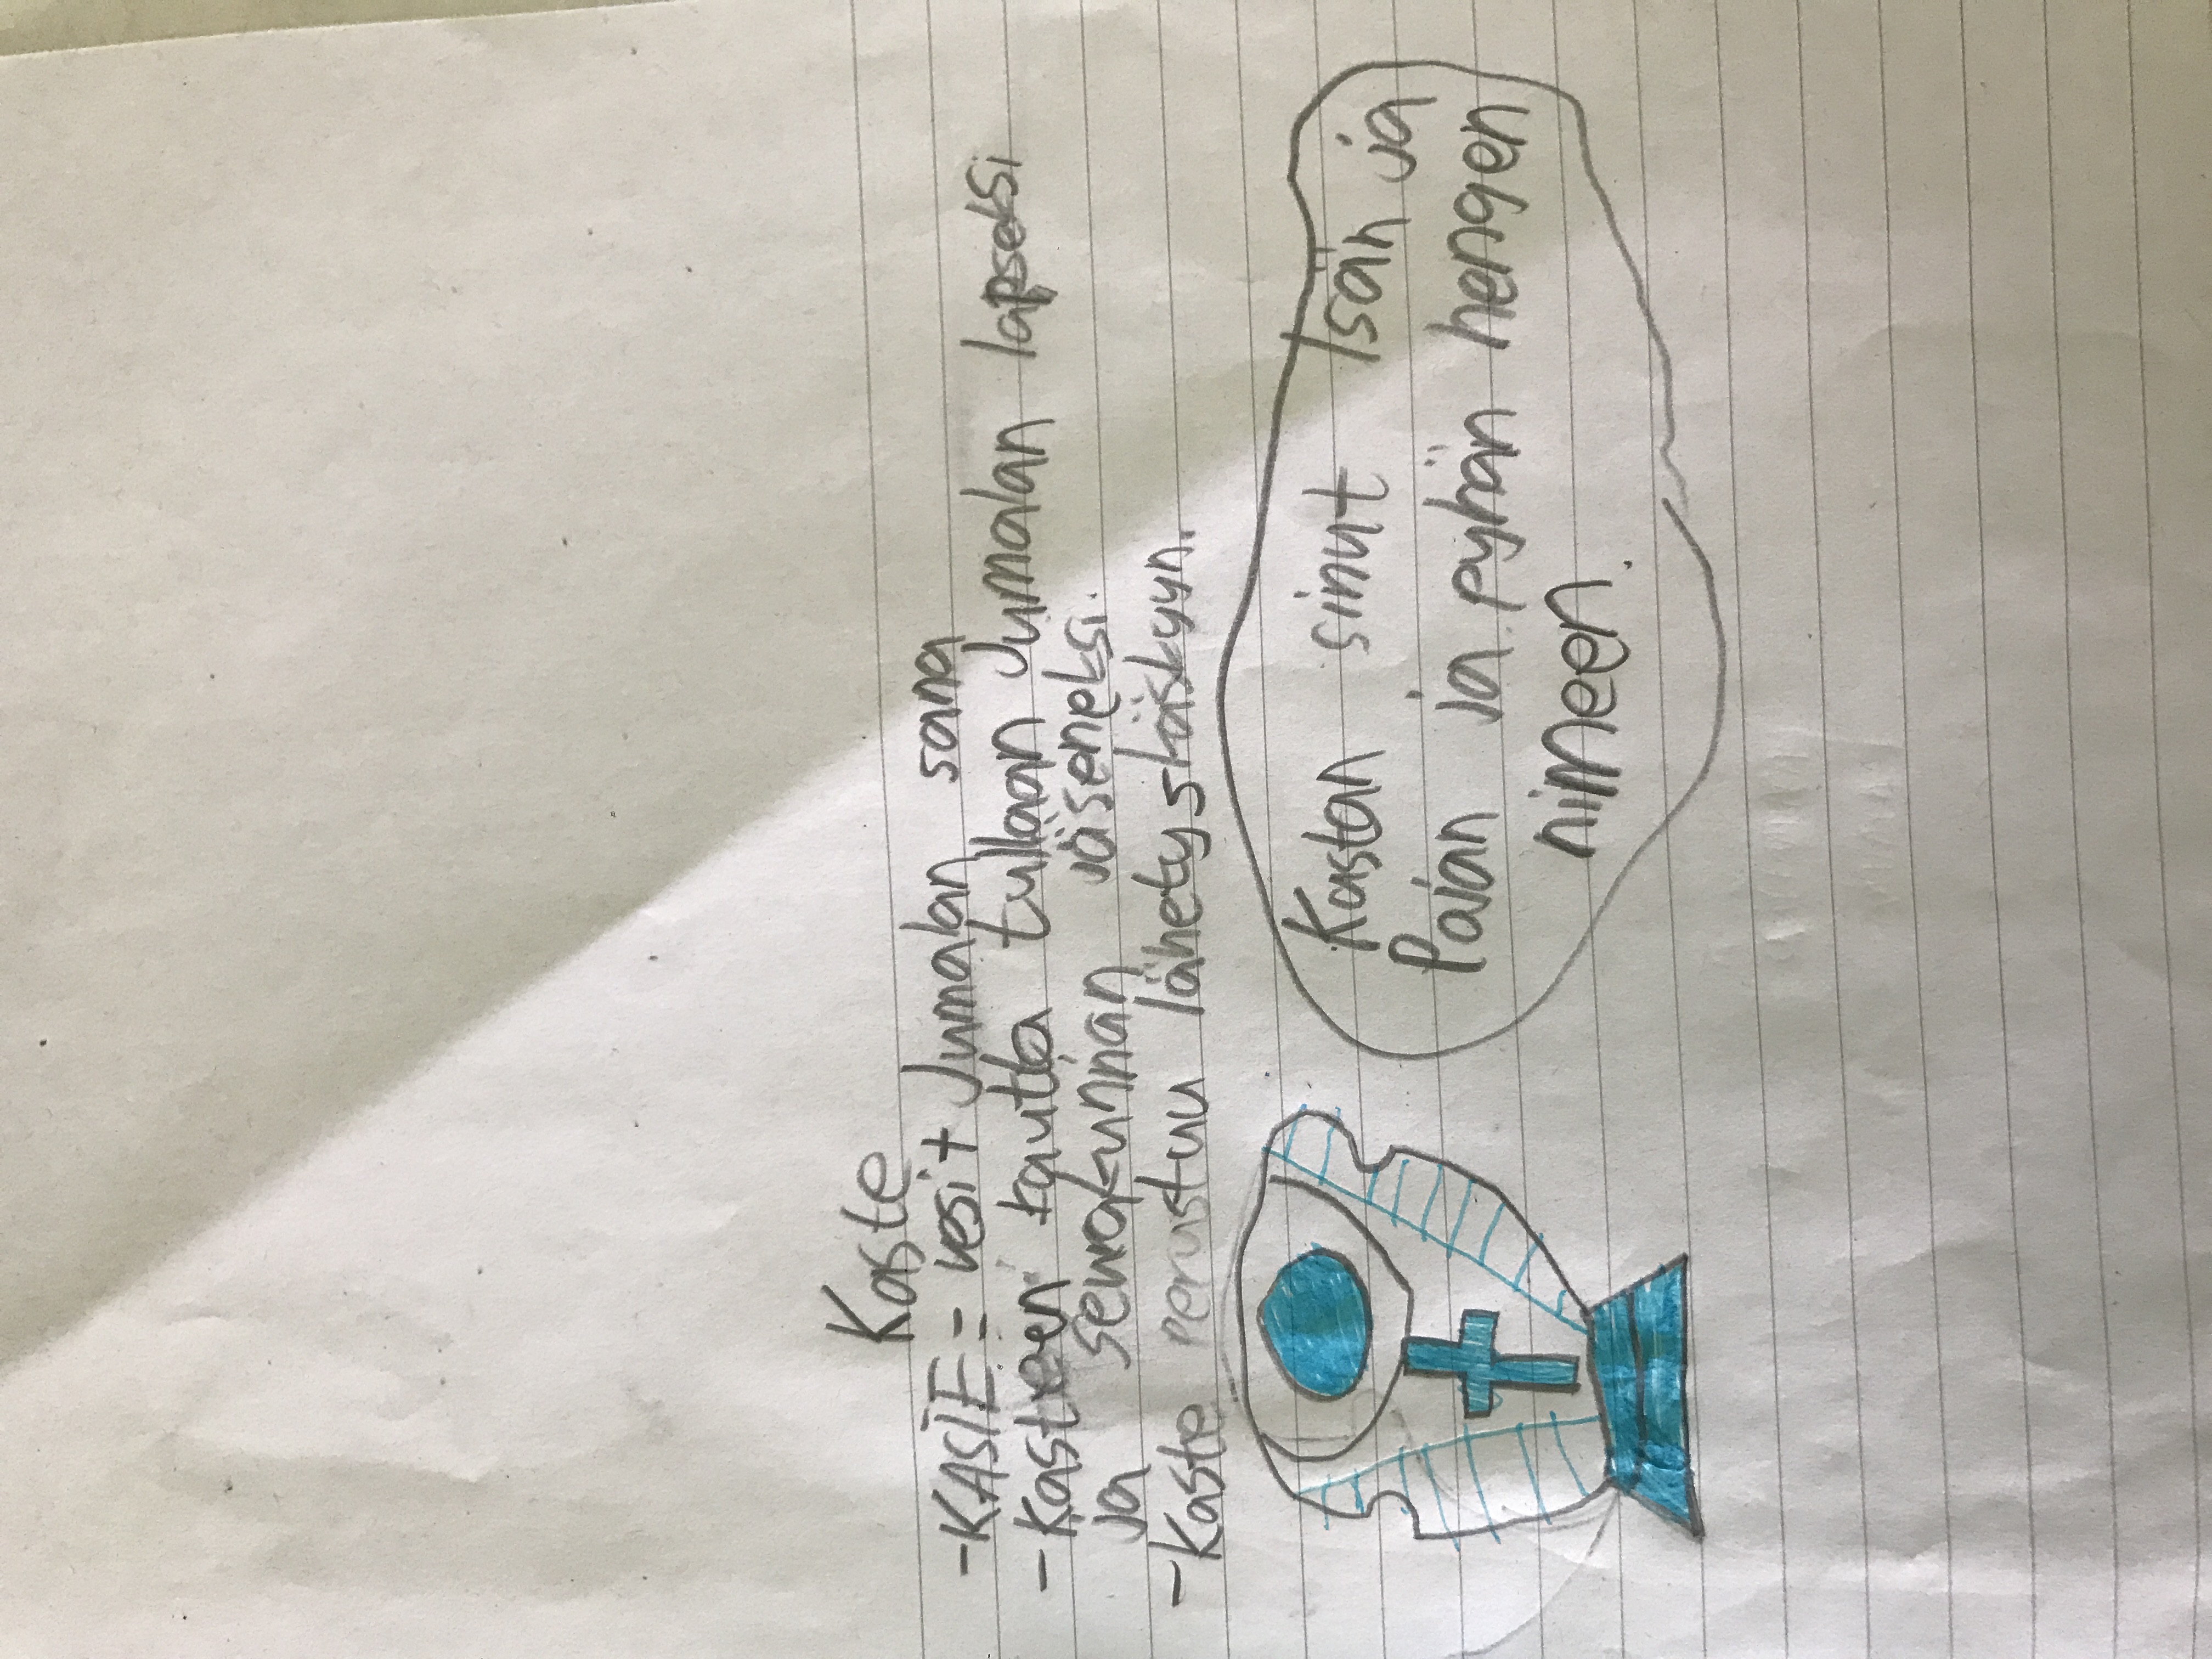 Kaste
-KASTE = vesi + Jumalan sana
- Kasteen kautta tullaan Jumalan lapseksi
ja seurakunnan jäseneksi.
-Kaste perustuu lähetyskäskyyn.
Kastan sinut Isän ja
Pojan ja pyhän hengen
nimeen.